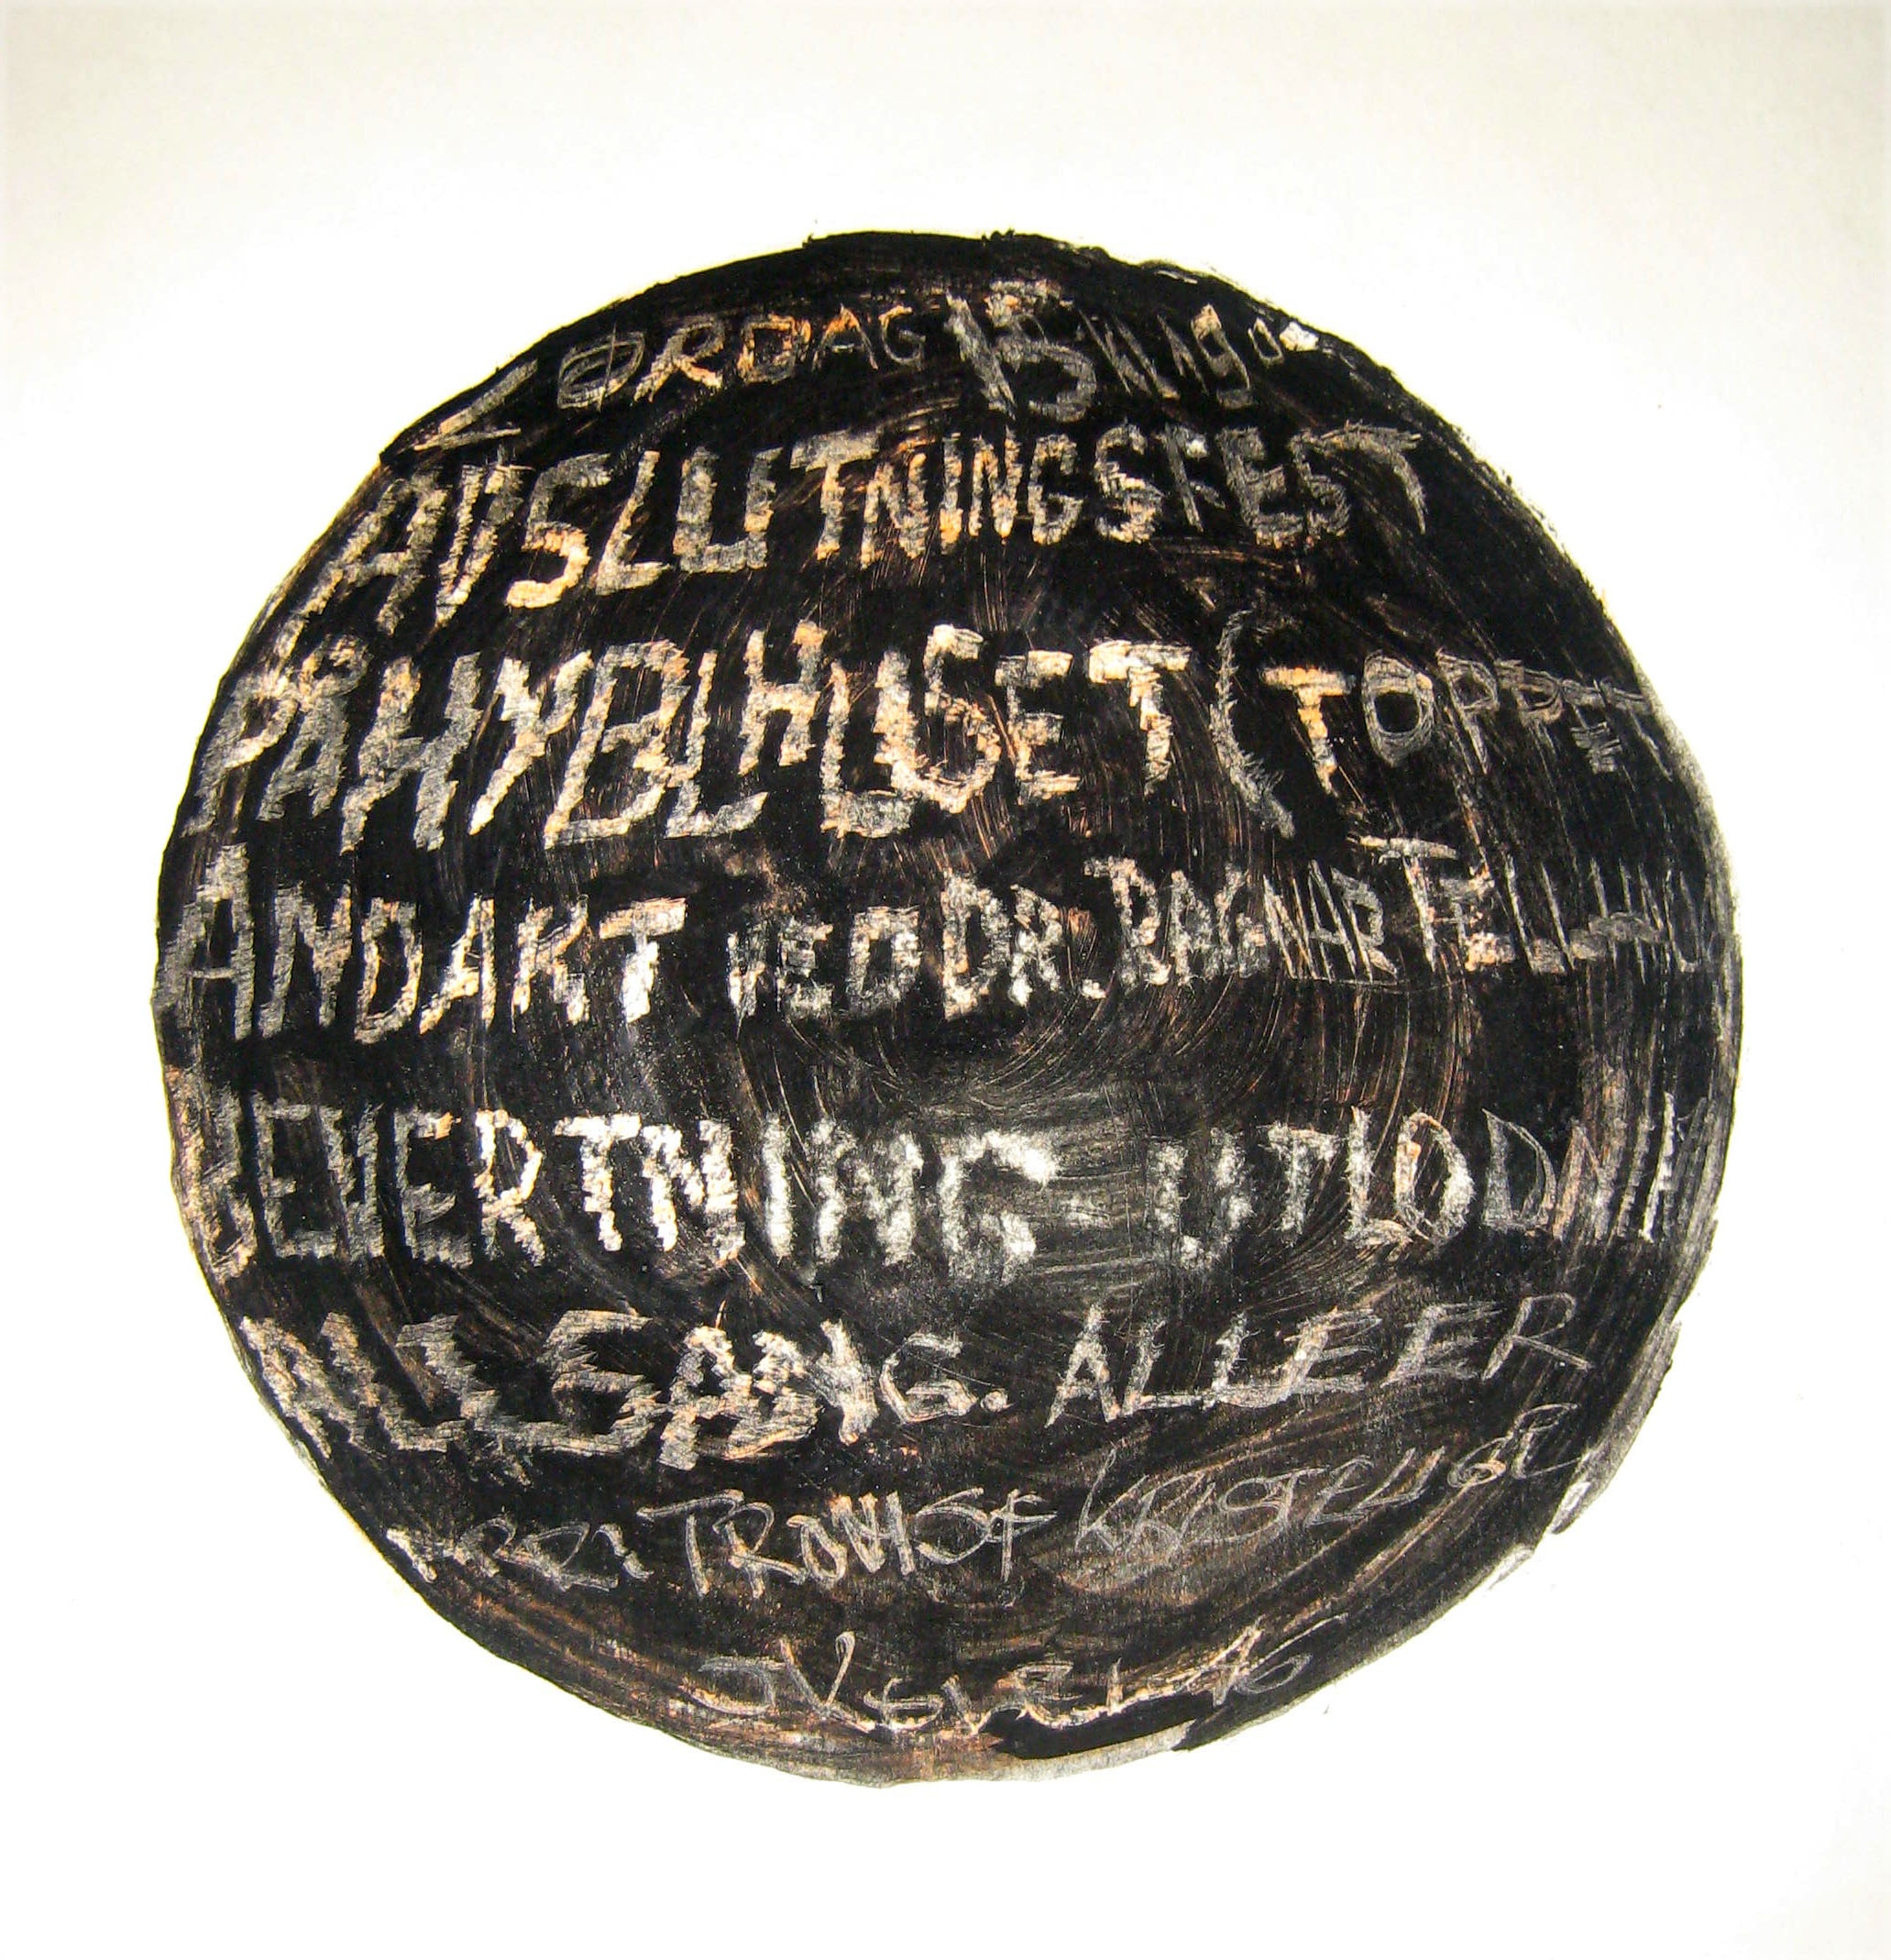 LØRDAG 13 KL 19.00
AVSLUTNINGSFEST
PÅ HYBLHUSET (TOPPEN
ANDAKT VED DR. RAGNAR
BEVERTNING - UTLODNIN
ALLSANG. ALLE ER
TROMSØ KRISTELIGE